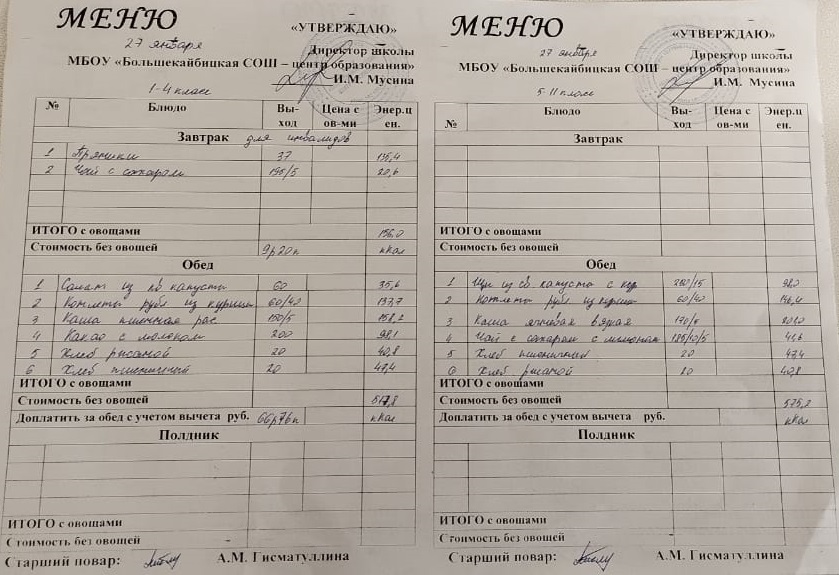 МЕНЮ
27 января
«УТВЕРЖДАЮ»
Директор школы
МБОУ «Большекайбицкая СОШ – центр образования»
И.М. Мусина
1-4 класс
№ Блюдо Вы-ход Цена с ов-ми Энер.ц ен.
Завтрак для инвалидов
1 Пряники 37 135,4
2 Чай с сахаром 195/5 20,6
ИТОГО с овощами 156,0
Стоимость без овощей 9р20п кКал
Обед
1 Салат из св капусты 60 35,6
2 Котлеты рубл из курицы 60/40 137,7
3 Каша пшенная рас 150/5 158,2
4 Какао с молоком 200 98,1
5 Хлеб ржаной 20 40,8
6 Хлеб пшеничный 20 47,4
ИТОГО с овощами
Стоимость без овощей 517,8
Доплатить за обед с учетом вычета руб. 66р76п кКал
Полдник
ИТОГО с овощами
Стоимость без овощей
Старший повар: А.М. Гисматуллина
МЕНЮ
27 января
«УТВЕРЖДАЮ»
Директор школы
МБОУ «Большекайбицкая СОШ – центр образования»
И.М. Мусина
5-11 класс
№ Блюдо Вы-ход Цена с ов-ми Энер.ц ен.
Завтрак
ИТОГО с овощами
Стоимость без овощей
Обед
1 Щи из св капусты с кур 250/15
2 Котлеты рубл из курицы 60/40 146,4
3 Каша ячневая вязкая
4 Чай с сахаром с лимоном 185/10/5
5 Хлеб пшеничный 20 47,4
6 Хлеб ржаной 20 40,8
ИТОГО с овощами
Стоимость без овощей 575,2
Доплатить за обед с учетом вычета руб. кКал
Полдник
ИТОГО с овощами
Стоимость без овощей
Старший повар: А.М. Гисматуллина